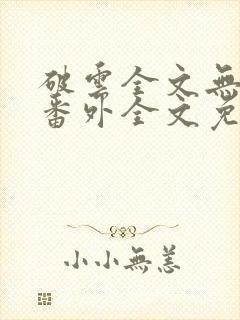 破雲全文無
番外全文免
小小無恙